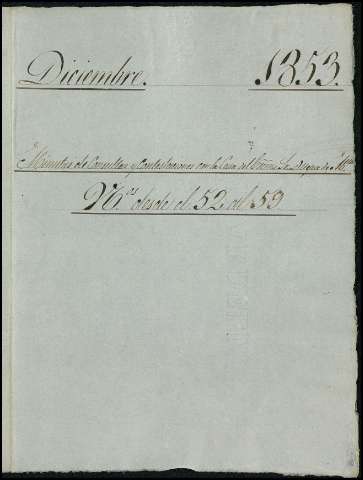 Diciembre. 1853.
Minutas de Consultas y Contestaciones con la Casa del Exmo. Sr. Duque de
N.os desde el 52 al 59